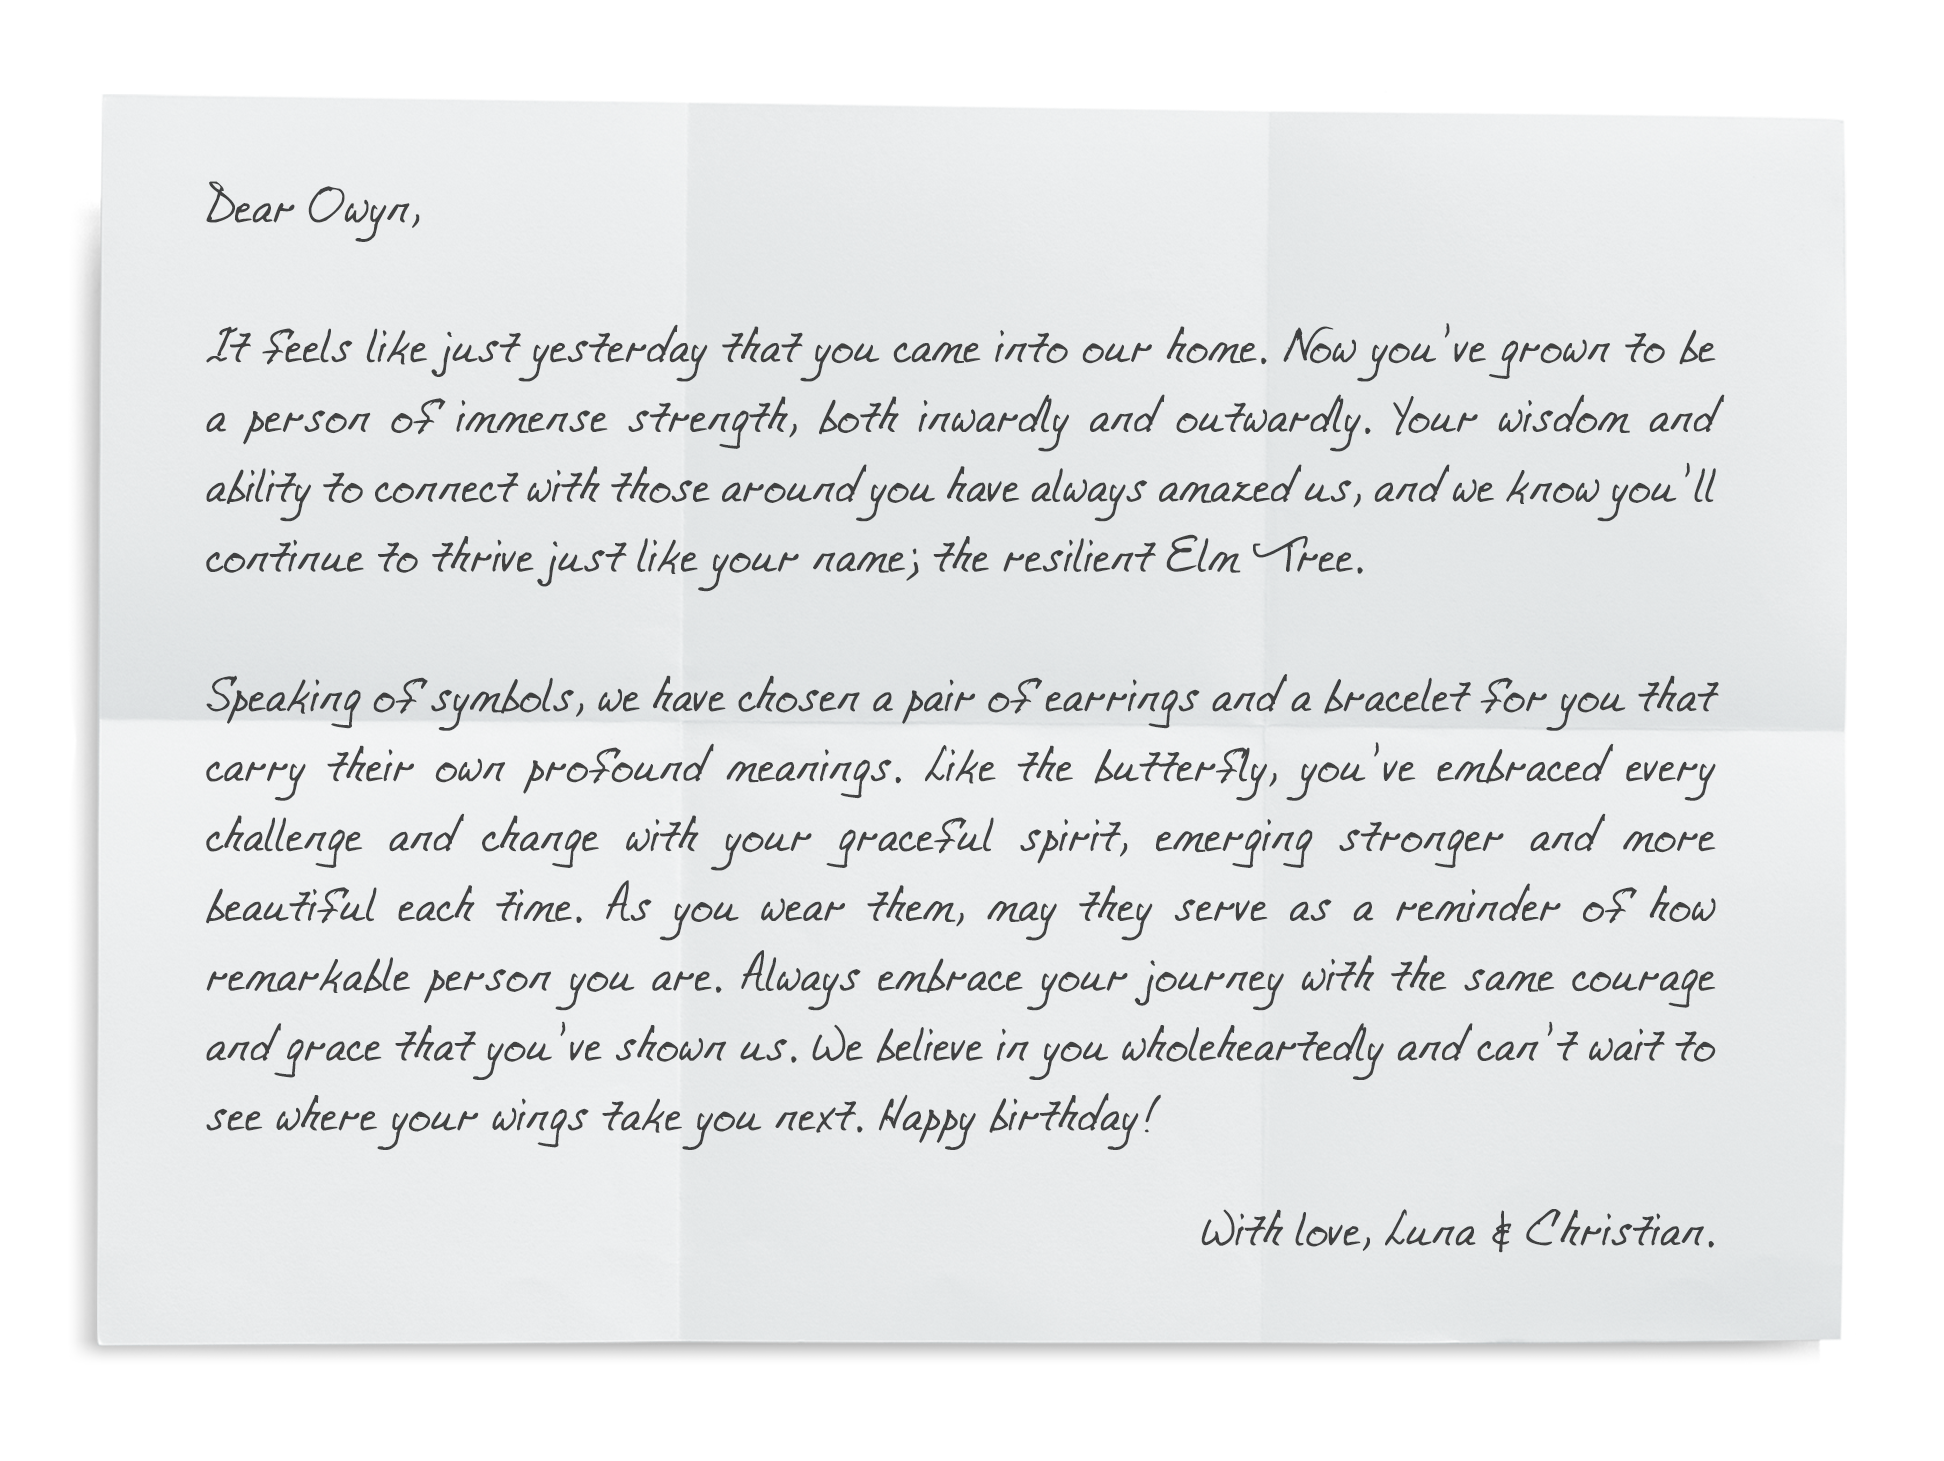 Dear Owyn,
It feels like just yesterday that you came into our home. Now you've grown to be
a person of immense strength, both inwardly and outwardly. Your wisdom and
ability to connect with those around you have always amazed us, and we know you'll
continue to thrive just like your name; the resilient Elm Tree.
Speaking of symbols, we have chosen a pair of earrings and a bracelet for you that
carry their own profound meanings. Like the butterfly, you've embraced every
challenge and change with your graceful spirit, emerging stronger and more
beautiful each time. As you wear them, may they serve as a reminder of how
remarkable person you are. Always embrace your journey with the same courage
and grace that you've shown us. We believe in you wholeheartedly and can't wait to
see where your wings take you next. Happy birthday!
With love, Luna & Christian.